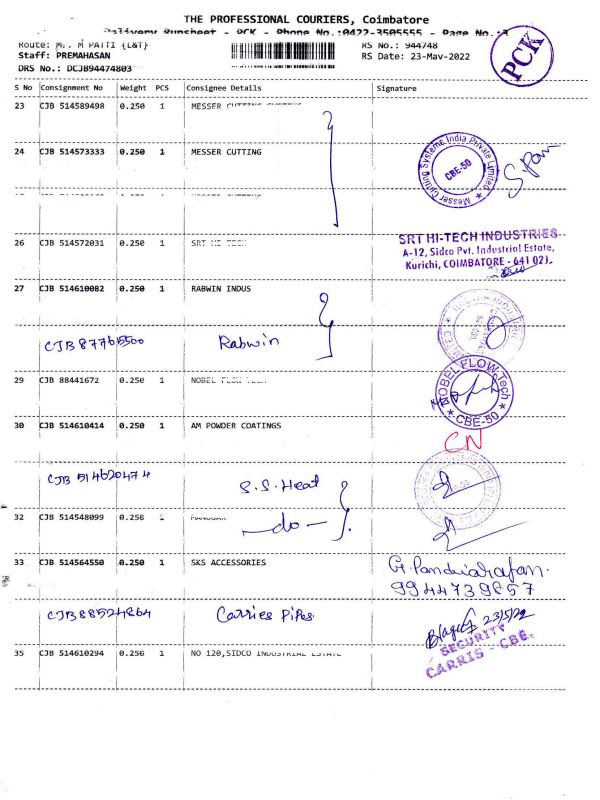 THE PROFESSIONAL COURIERS, Coimbatore
Delivery Runsheet - PCK - Phone No.:0422-3505555 - Page No.:
Route: M. M PATTI {L&T}
RS No.: 944748
Staff: PREMAHASAN
RS Date: 23-May-2022
DRS No.: DCJB94474803
PCK
S No Consignment No Weight PCS Consignee Details Signature
23 CJB 514589498 0.250 1 MESSER CUTTING
24 CJB 514573333 0.250 1 MESSER CUTTING
Messer Cutting Systems India Private Limited
CBE-50
26 CJB 514572031 0.250 1 SRT HI TECH
SRT HI-TECH INDUSTRIES
A-12, Sidco Pvt. Industrial Estate,
Kurichi, COIMBATORE - 641 021.
27 CJB 514610082 0.250 1 RABWIN INDUS
CJB 87765500 Rabwin
29 CJB 88441672 0.250 1 NOBEL FLOW TECH
NOBEL FLOW Tech
CBE-50
30 CJB 514610414 0.250 1 AM POWDER COATINGS
CN
CJB 514620474 S.S. Heat
32 CJB 514548099 0.250
-do-
33 CJB 514564550 0.250 1 SKS ACCESSORIES
G. Pandiarajan.
9944739657
CJB88524864 Carries Pipes
23/5/22
SECURITY
CARRIS - CBE.
35 CJB 514610294 0.250 1 NO 120,SIDCO INDUSTRIAL ESTATE